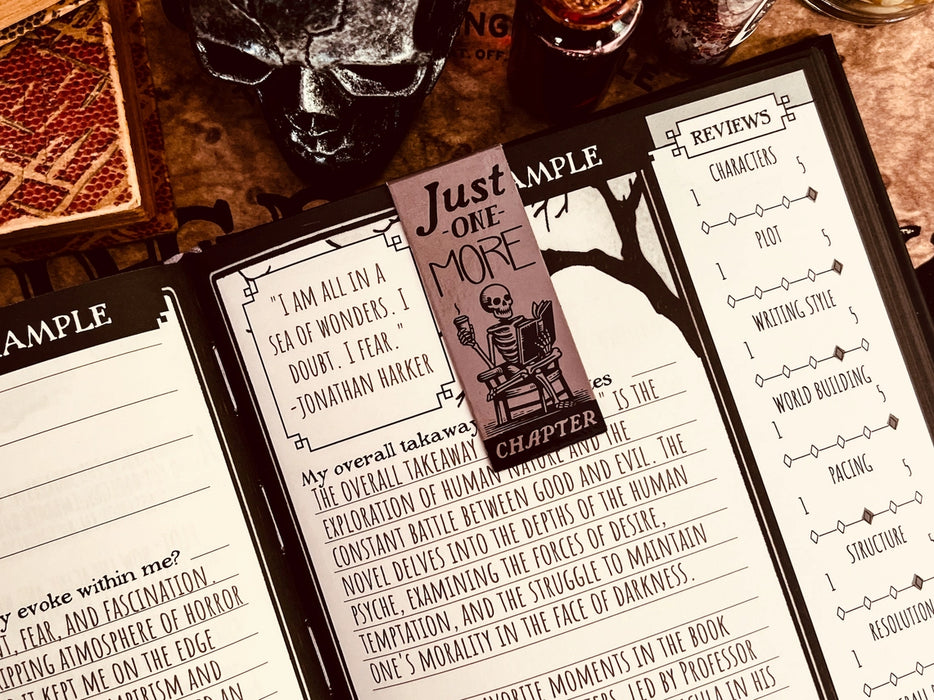 NG
T. OFF
AMPLE
y evoke within me?
T, FEAR, AND FASCINATION.
IPPING ATMOSPHERE OF HORROR
IT KEPT ME ON THE EDGE
MPIRISM AND
ED AN
AMPLE
"I AM ALL IN A
SEA OF WONDERS. I
DOUBT. I FEAR."
-JONATHAN HARKER
Just
-ONE-
MORE
CHAPTER
My overall takeaway
tes
THE OVERALL TAKEAWAY " IS THE
EXPLORATION OF HUMAN NATURE AND THE
CONSTANT BATTLE BETWEEN GOOD AND EVIL. THE
NOVEL DELVES INTO THE DEPTHS OF THE HUMAN
PSYCHE, EXAMINING THE FORCES OF DESIRE,
TEMPTATION, AND THE STRUGGLE TO MAINTAIN
ONE'S MORALITY IN THE FACE OF DARKNESS.
AVORITE MOMENTS IN THE BOOK
TERS, LED BY PROFESSOR
CULA IN HIS
REVIEWS
CHARACTERS
1 5
PLOT
1 5
WRITING STYLE
1 5
WORLD BUILDING
1 5
PACING
1 5
STRUCTURE
1 5
RESOLUTION
1